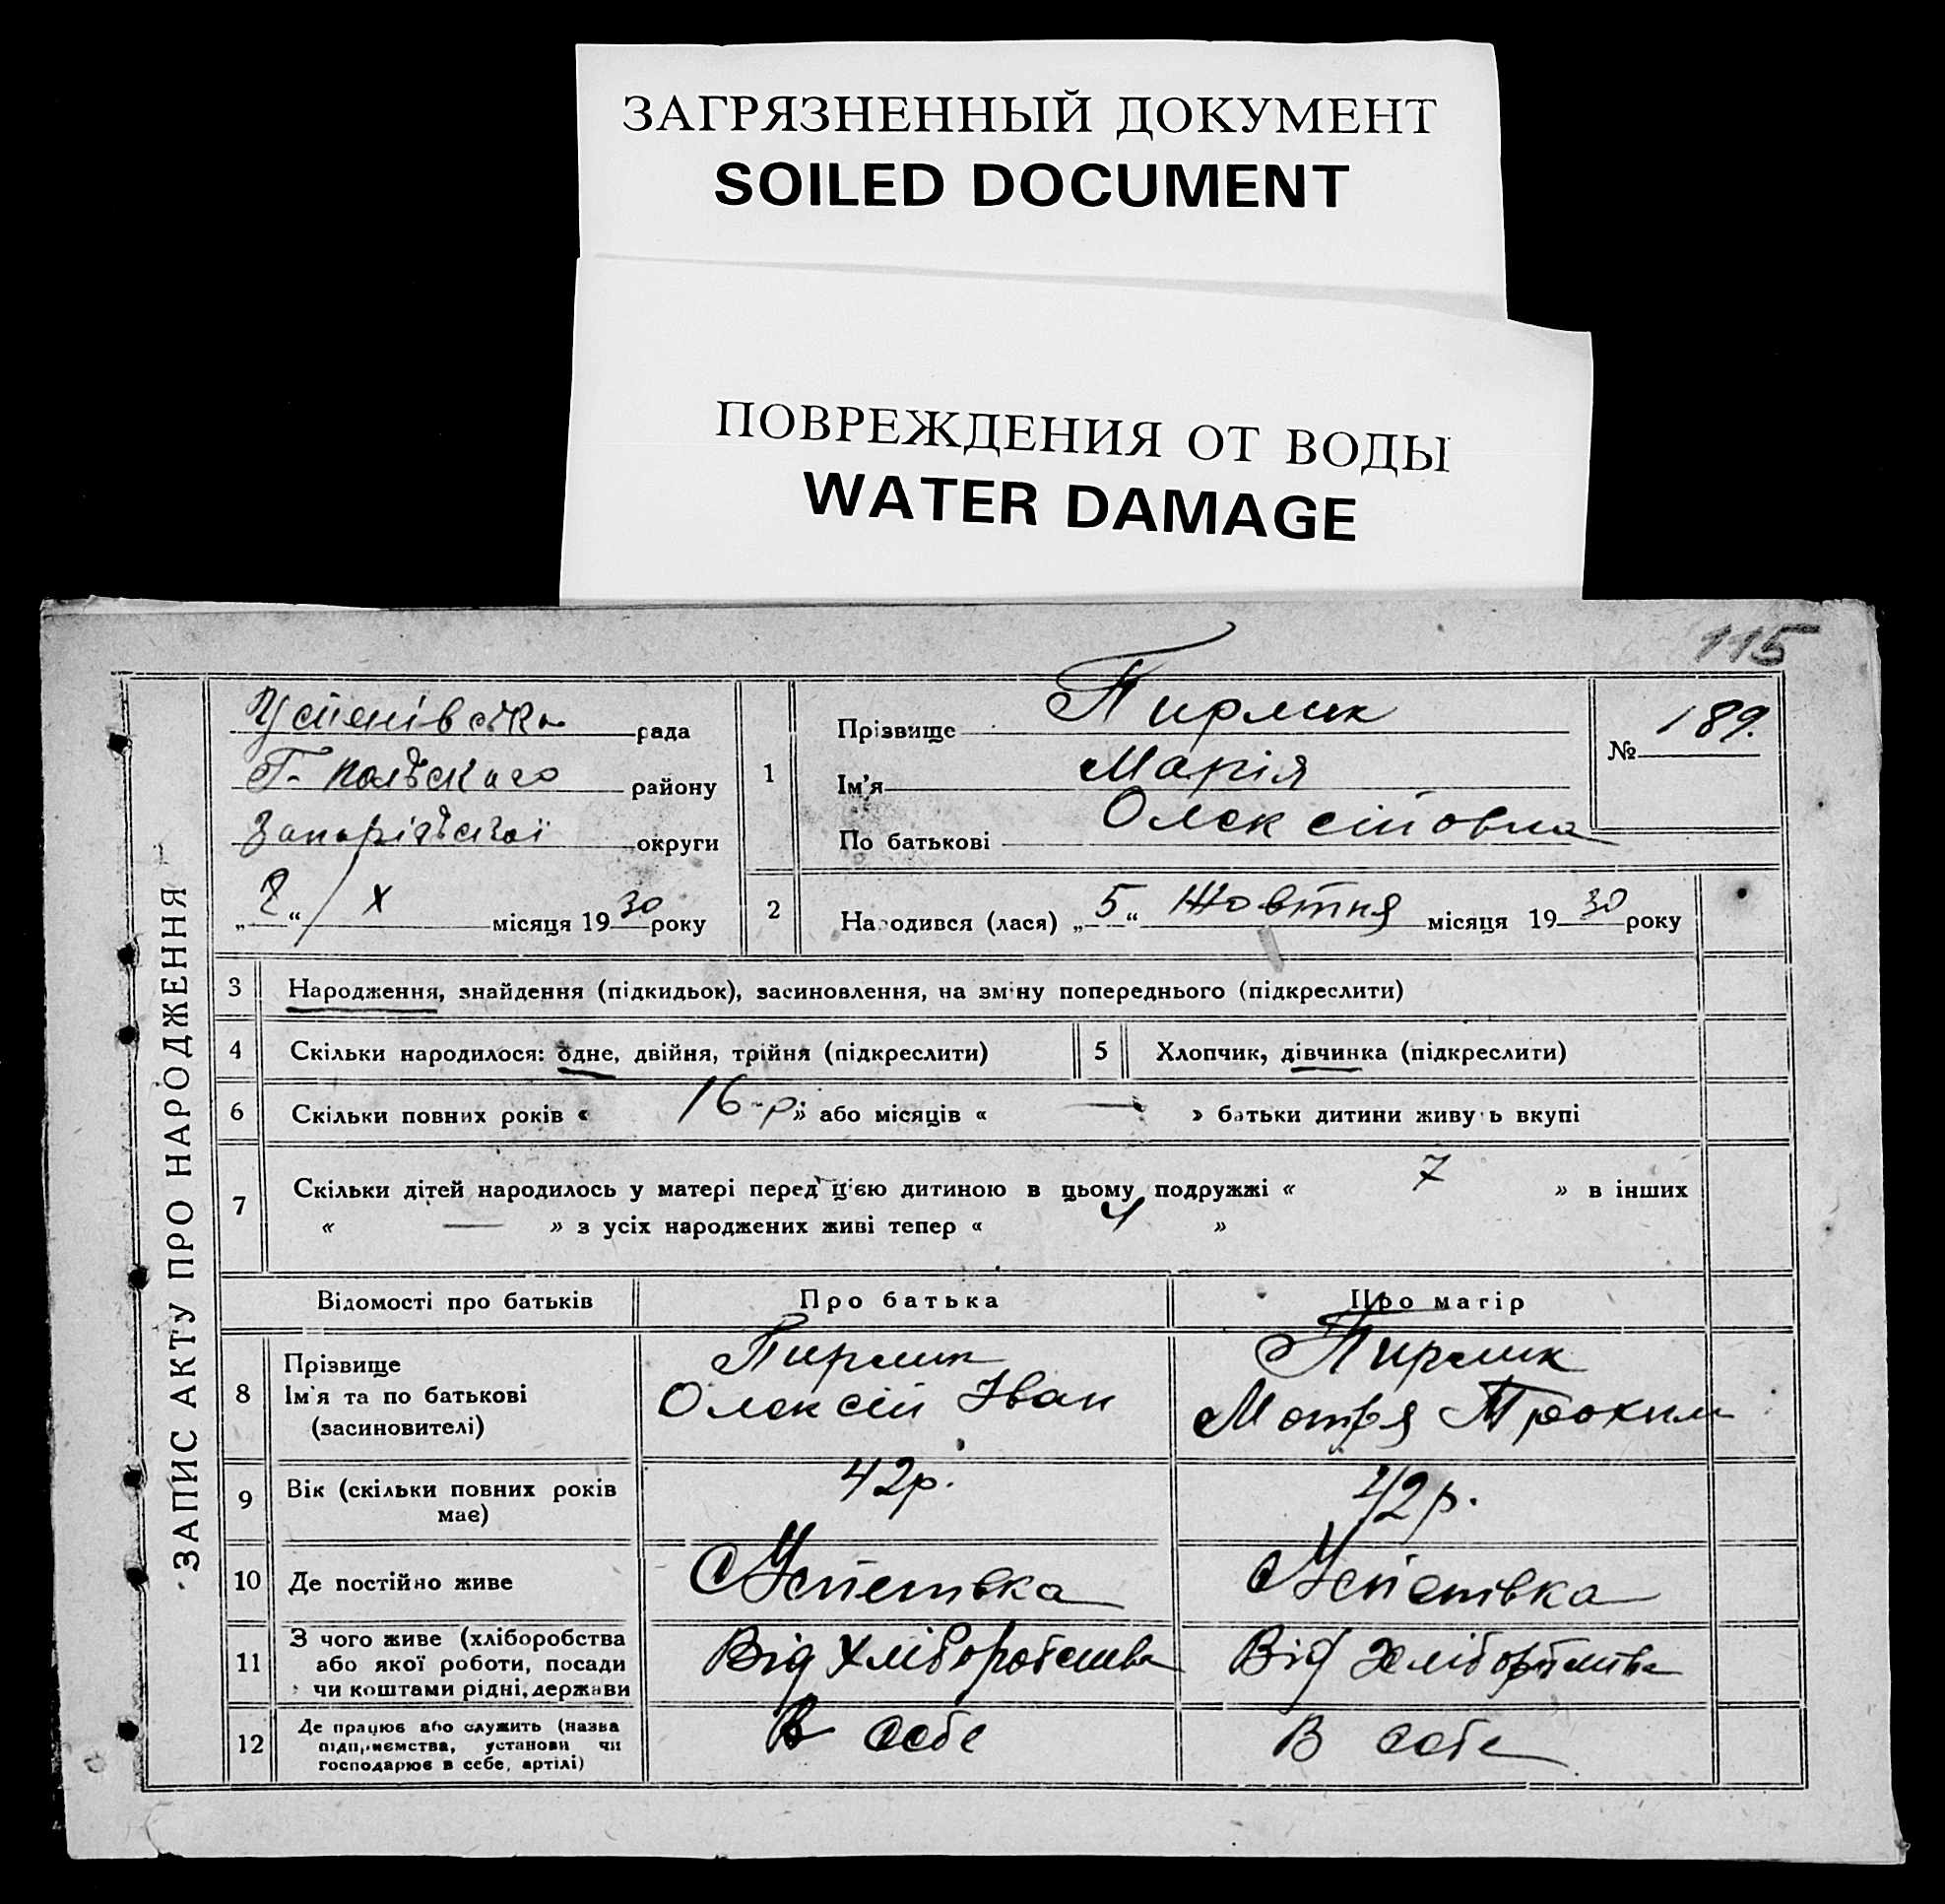 ЗАГРЯЗНЕННЫЙ ДОКУМЕНТ
SOILED DOCUMENT
ПОВРЕЖДЕНИЯ ОТ ВОДЫ
WATER DAMAGE
115
ЗАПИС АКТУ ПРО НАРОДЖЕННЯ
Успенівська рада
Г-польского району
Запоріяьскої округи
„ “ / X місяця 1930 року
1
Прізвище Пирлик
Ім'я Марія
По батькові Олексіїовна
№ 189.
2 Народився (лася) „5“ Жовтня місяця 1930 року
3 Народження, знайдення (підкидьок), засиновлення, на зміну попереднього (підкреслити)
4 Скільки народилося: одне, двійня, трійня (підкреслити) 5 Хлопчик, дівчинка (підкреслити)
6 Скільки повних років « 16-р » або місяців « — » батьки дитини живуть вкупі
7 Скільки дітей народилось у матері перед ц'єю дитиною в цьому подружжі « 7 » в інших
« — » з усіх народжених живі тепер « 4 »
Відомості про батьків Про батька Про матір
8 Прізвище Пирлик Пирлик
Ім'я та по батькові Олексій Іван Мотря Трохим
(засиновителі)
9 Вік (скільки повних років має) 42р. 42р.
10 Де постійно живе С Успенівка С Успенівка
11 З чого живе (хліборобства
або якої роботи, посади
чи коштами рідні, держави Від хліборобства Від хліборобства
12 Де працює або служить (назва
підприємства, установи чи
господарює в себе, артілі) В себе В себе